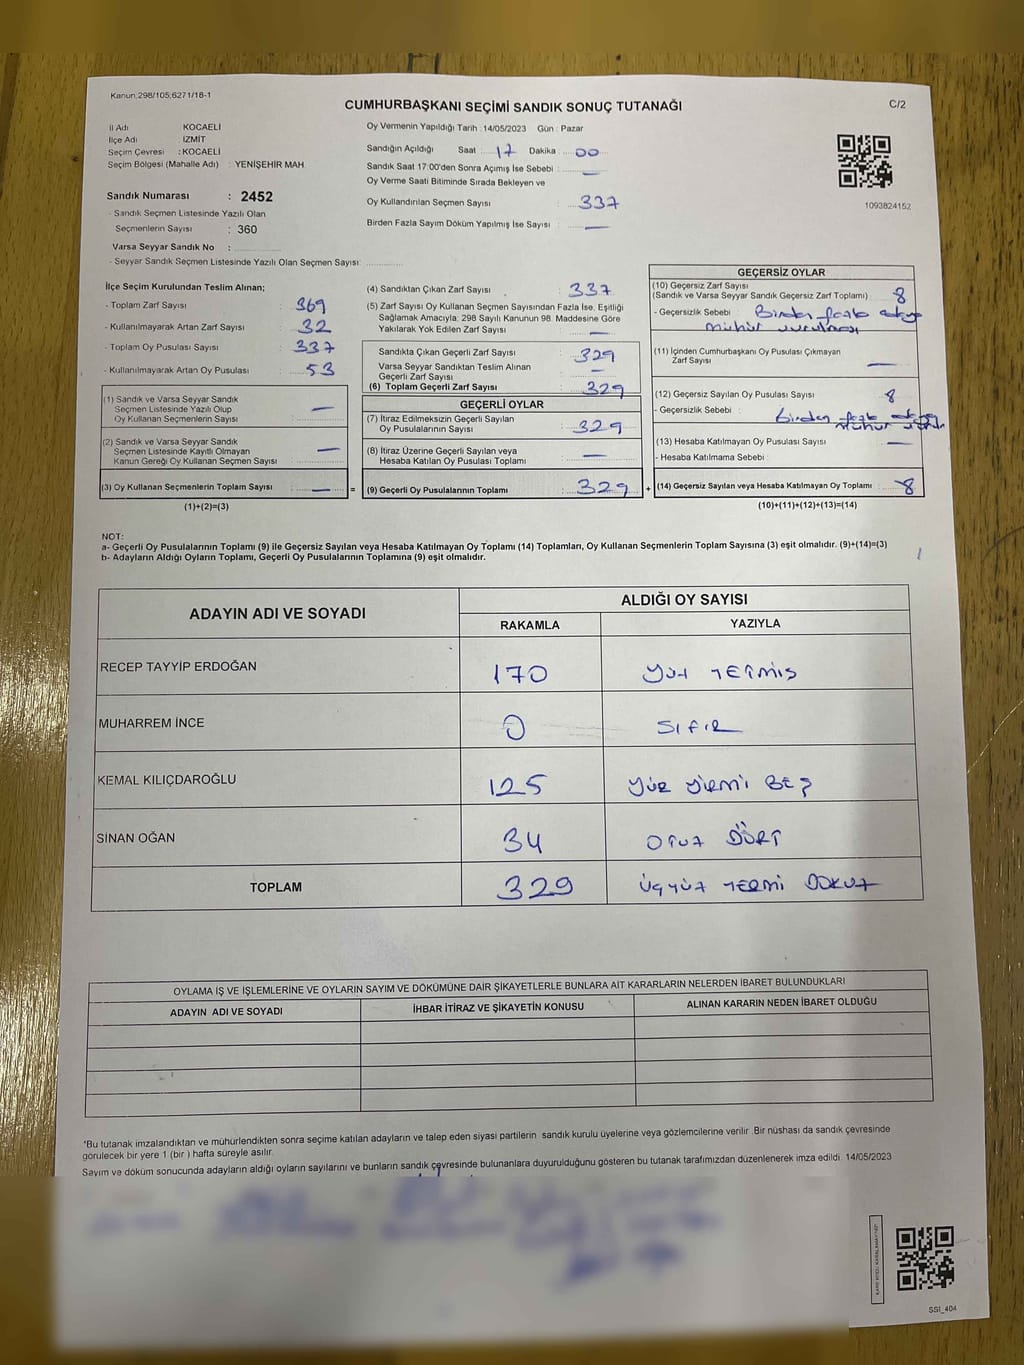 Kanun:298/105;6271/18-1
CUMHURBAŞKANI SEÇİMİ SANDIK SONUÇ TUTANAĞI
C/2
İl Adı KOCAELİ
İlçe Adı İZMİT
Seçim Çevresi : KOCAELİ
Seçim Bölgesi (Mahalle Adı) : YENİŞEHİR MAH.
Sandık Numarası : 2452
- Sandık Seçmen Listesinde Yazılı Olan
Seçmenlerin Sayısı : 360
Varsa Seyyar Sandık No :
- Seyyar Sandık Seçmen Listesinde Yazılı Olan Seçmen Sayısı:
Oy Vermenin Yapıldığı Tarih : 14/05/2023 Gün : Pazar
Sandığın Açıldığı Saat : 17 Dakika : 00
Sandık Saat 17:00'den Sonra Açımış İse Sebebi : —
Oy Verme Saati Bitiminde Sırada Bekleyen ve
Oy Kullandırılan Seçmen Sayısı : 337
Birden Fazla Sayım Döküm Yapılmış İse Sayısı : —
1093824152
İlçe Seçim Kurulundan Teslim Alınan;
- Toplam Zarf Sayısı : 369
- Kullanılmayarak Artan Zarf Sayısı : 32
- Toplam Oy Pusulası Sayısı : 337
- Kullanılmayarak Artan Oy Pusulası : 53
(1) Sandık ve Varsa Seyyar Sandık
Seçmen Listesinde Yazılı Olup
Oy Kullanan Seçmenlerin Sayısı —
(2) Sandık ve Varsa Seyyar Sandık
Seçmen Listesinde Kayıtlı Olmayan
Kanun Gereği Oy Kullanan Seçmen Sayısı —
(3) Oy Kullanan Seçmenlerin Toplam Sayısı : —
(1)+(2)=(3)
(4) Sandıktan Çıkan Zarf Sayısı : 337
(5) Zarf Sayısı Oy Kullanan Seçmen Sayısından Fazla İse, Eşitliği
Sağlamak Amacıyla; 298 Sayılı Kanunun 98. Maddesine Göre
Yakılarak Yok Edilen Zarf Sayısı : —
Sandıkta Çıkan Geçerli Zarf Sayısı : 329
Varsa Seyyar Sandıktan Teslim Alınan
Geçerli Zarf Sayısı : —
(6) Toplam Geçerli Zarf Sayısı : 329
GEÇERLİ OYLAR
(7) İtiraz Edilmeksizin Geçerli Sayılan
Oy Pusulalarının Sayısı : 329
(8) İtiraz Üzerine Geçerli Sayılan veya
Hesaba Katılan Oy Pusulası Toplamı : —
= (9) Geçerli Oy Pusulalarının Toplamı : 329 +
GEÇERSİZ OYLAR
(10) Geçersiz Zarf Sayısı
(Sandık ve Varsa Seyyar Sandık Geçersiz Zarf Toplamı) 8
- Geçersizlik Sebebi : Birden fazla adaya
mühür vurulması
(11) İçinden Cumhurbaşkanı Oy Pusulası Çıkmayan
Zarf Sayısı : —
(12) Geçersiz Sayılan Oy Pusulası Sayısı : 8
- Geçersizlik Sebebi : Birden fazla adaya
mühür
(13) Hesaba Katılmayan Oy Pusulası Sayısı : —
- Hesaba Katılmama Sebebi :
(14) Geçersiz Sayılan veya Hesaba Katılmayan Oy Toplamı : 8
(10)+(11)+(12)+(13)=(14)
NOT:
a- Geçerli Oy Pusulalarının Toplamı (9) ile Geçersiz Sayılan veya Hesaba Katılmayan Oy Toplamı (14) Toplamları, Oy Kullanan Seçmenlerin Toplam Sayısına (3) eşit olmalıdır. (9)+(14)=(3)
b- Adayların Aldığı Oyların Toplamı, Geçerli Oy Pusulalarının Toplamına (9) eşit olmalıdır.
ADAYIN ADI VE SOYADI
ALDIĞI OY SAYISI
RAKAMLA YAZIYLA
RECEP TAYYİP ERDOĞAN 170 YÜZ YETMİŞ
MUHARREM İNCE 0 SIFIR
KEMAL KILIÇDAROĞLU 125 YÜZ YİRMİ BEŞ
SİNAN OĞAN 34 OTUZ DÖRT
TOPLAM 329 ÜÇYÜZ YERMİ DOKUZ
OYLAMA İŞ VE İŞLEMLERİNE VE OYLARIN SAYIM VE DÖKÜMÜNE DAİR ŞİKAYETLERLE BUNLARA AİT KARARLARIN NELERDEN İBARET BULUNDUKLARI
ADAYIN ADI VE SOYADI İHBAR İTİRAZ VE ŞİKAYETİN KONUSU ALINAN KARARIN NEDEN İBARET OLDUĞU
*Bu tutanak imzalandıktan ve mühürlendikten sonra seçime katılan adayların ve talep eden siyasi partilerin sandık kurulu üyelerine veya gözlemcilerine verilir. Bir nüshası da sandık çevresinde
görülecek bir yere 1 (bir ) hafta süreyle asılır.
Sayım ve döküm sonucunda adayların aldığı oyların sayılarını ve bunların sandık çevresinde bulunanlara duyurulduğunu gösteren bu tutanak tarafımızdan düzenlenerek imza edildi. 14/05/2023
SSİ_404